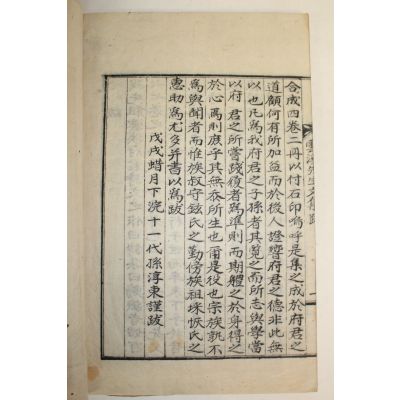 合成四卷二冊以付石印嗚呼是集之成於府君之
道顧何有所加益而於後人證嚮府君之德非此無
以也凡爲我府君之子孫者其覽之而所志與學當
以府君之所嘗踐復者爲準則而期軆之於身得之
於心焉則庶乎其無忝所生也爾是役也宗族孰不
爲與聞者而惟族叔守鉉氏之勤傍族祖埰恢氏之
惠助爲尤多幷書以爲跋
戊戌蜡月下浣十一代孫淳東謹跋